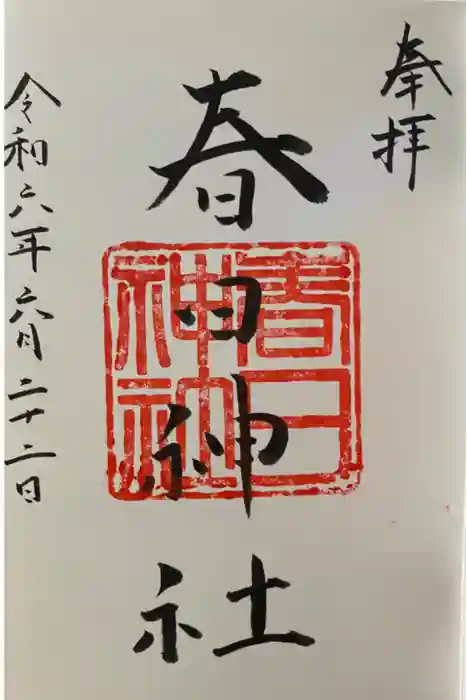 奉拝
春日神社
春日
神社
令和六年六月二十二日